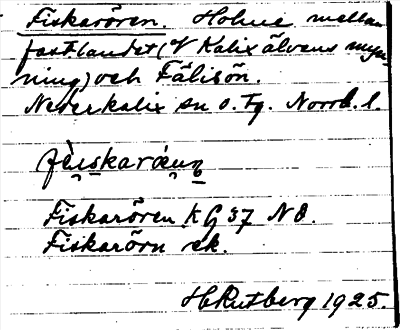 Fiskarören. Holme mellan
fastlandet (V Kalix älvens myn-
ning) och Fälisön.
Nederkalix sn o. Tg. Norrb. l.
Fiskarören KG 37 NO.
Fiskarörn rek.
H Rutberg 1925.